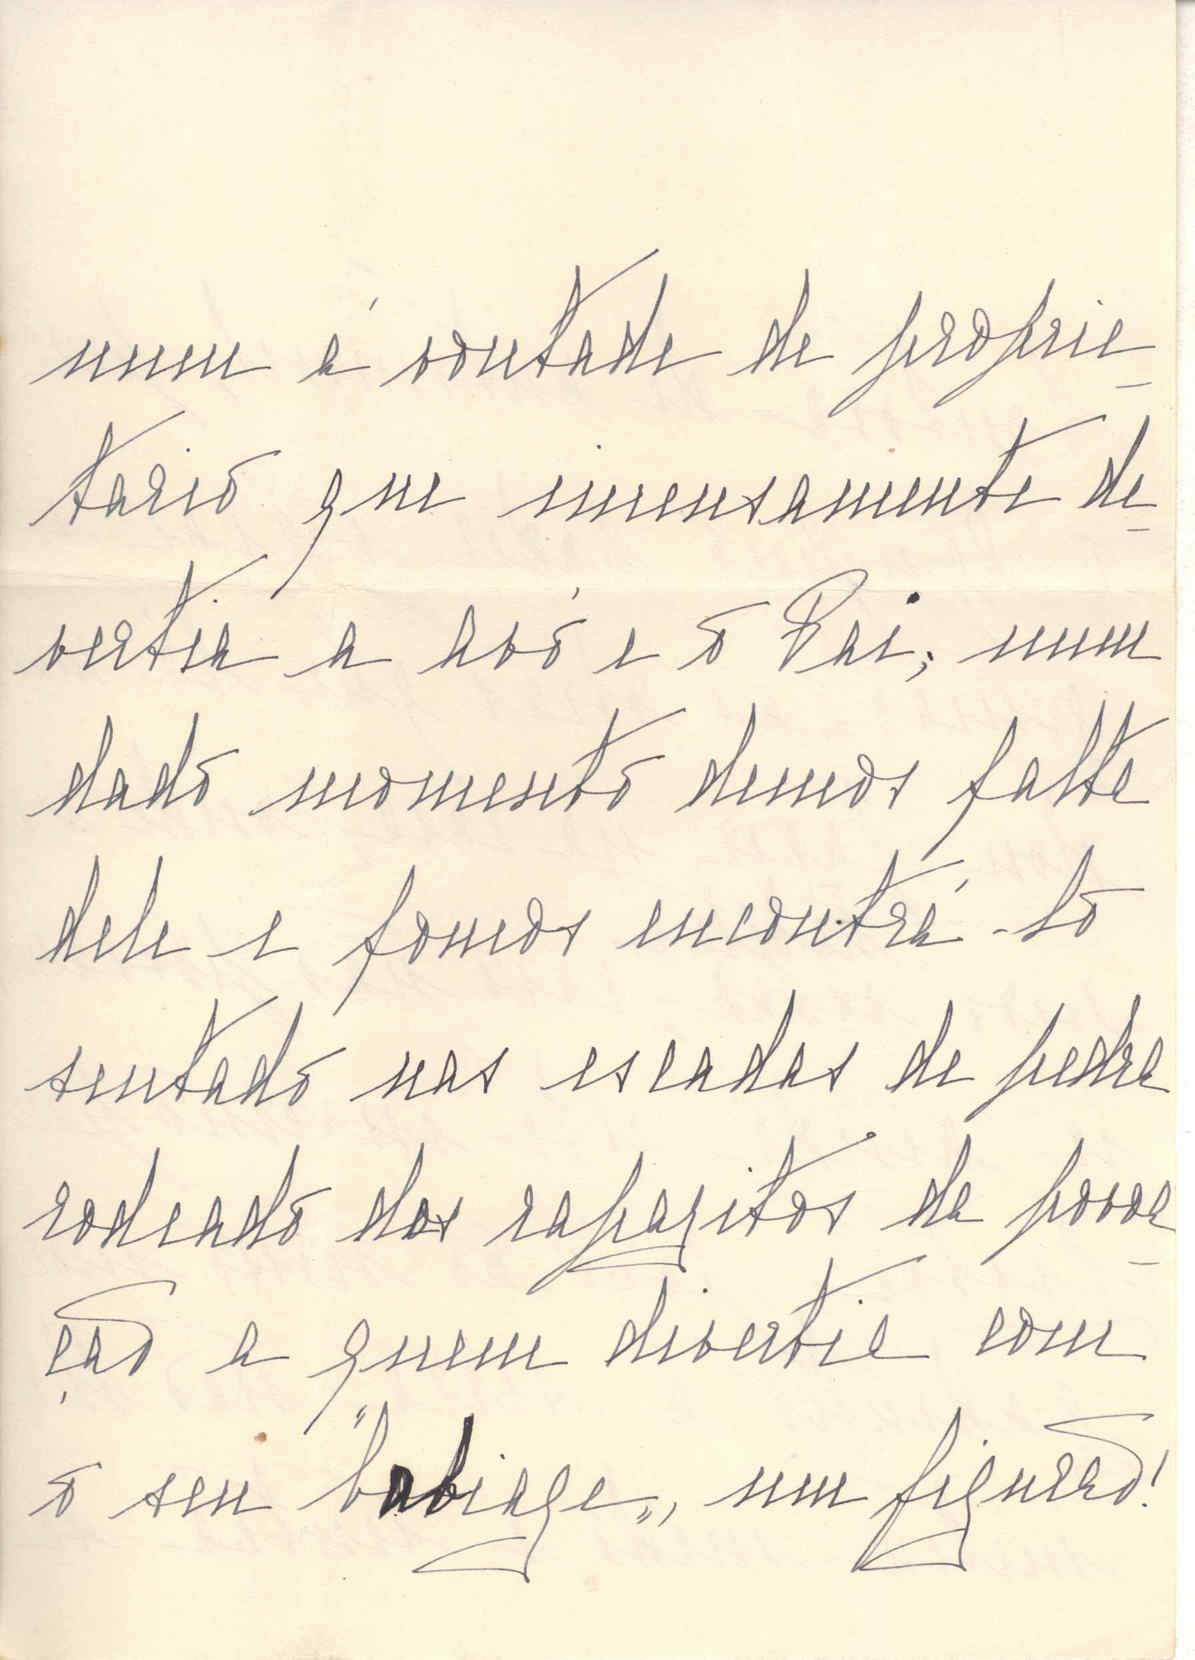 num à vontade de proprie-
tario que imensamente de-
vertia a avó e o Pai; num
dado momento demos falta
dele e fomos encontrá-lo
sentado nas escadas de pedra
rodeado dos rapazitos da povoa-
ção a quem divertia com
o seu "babiage", um figurão!